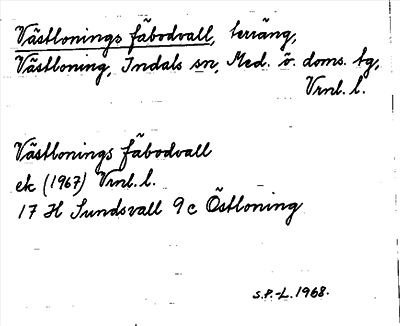 Västlonings fäbodvall, terräng,
Västloning, Indals sn, Med. ö. doms. tg,
Vrnl. l.
Västlonings fäbodvall
ek (1967) Vrnl. l.
17 H Sundsvall 9 c Östloning
S.P.-L. 1968.